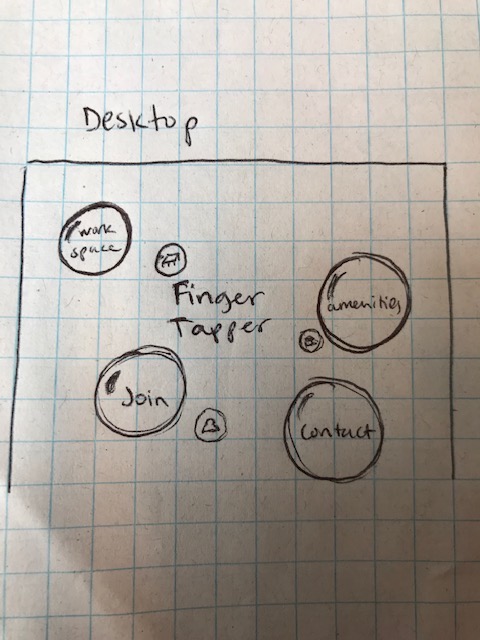 Desktop
work
space
Finger
Tapper
amenities
Join
contact